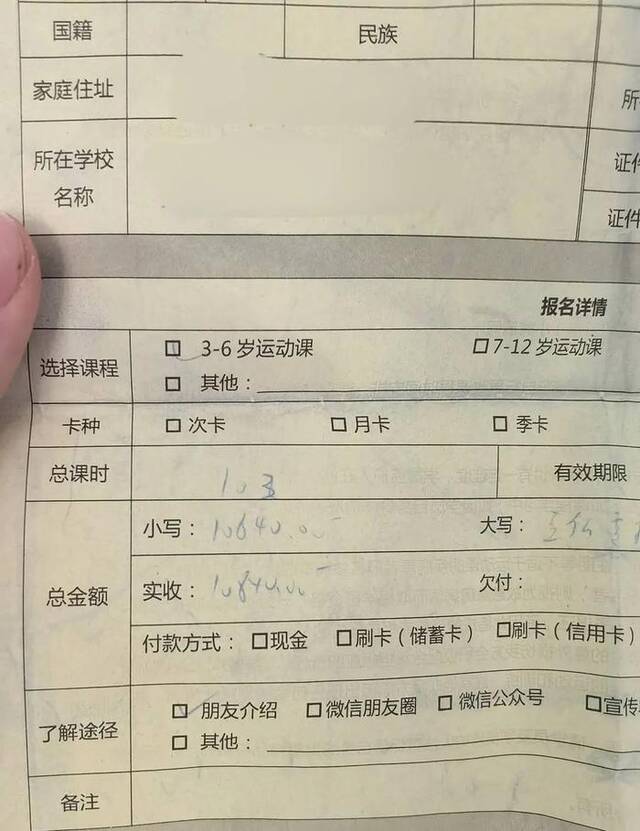 国籍 民族
家庭住址 所
所在学校 证件
名称 证件
报名详情
选择课程 3-6 岁运动课 7-12 岁运动课
其他：
卡种 次卡 月卡 季卡
总课时 103 有效期限
总金额 小写： 10640.00 大写：
实收： 欠付：
付款方式： 现金 刷卡（储蓄卡） 刷卡（信用卡）
了解途径 朋友介绍 微信朋友圈 微信公众号 宣传
其他：
备注